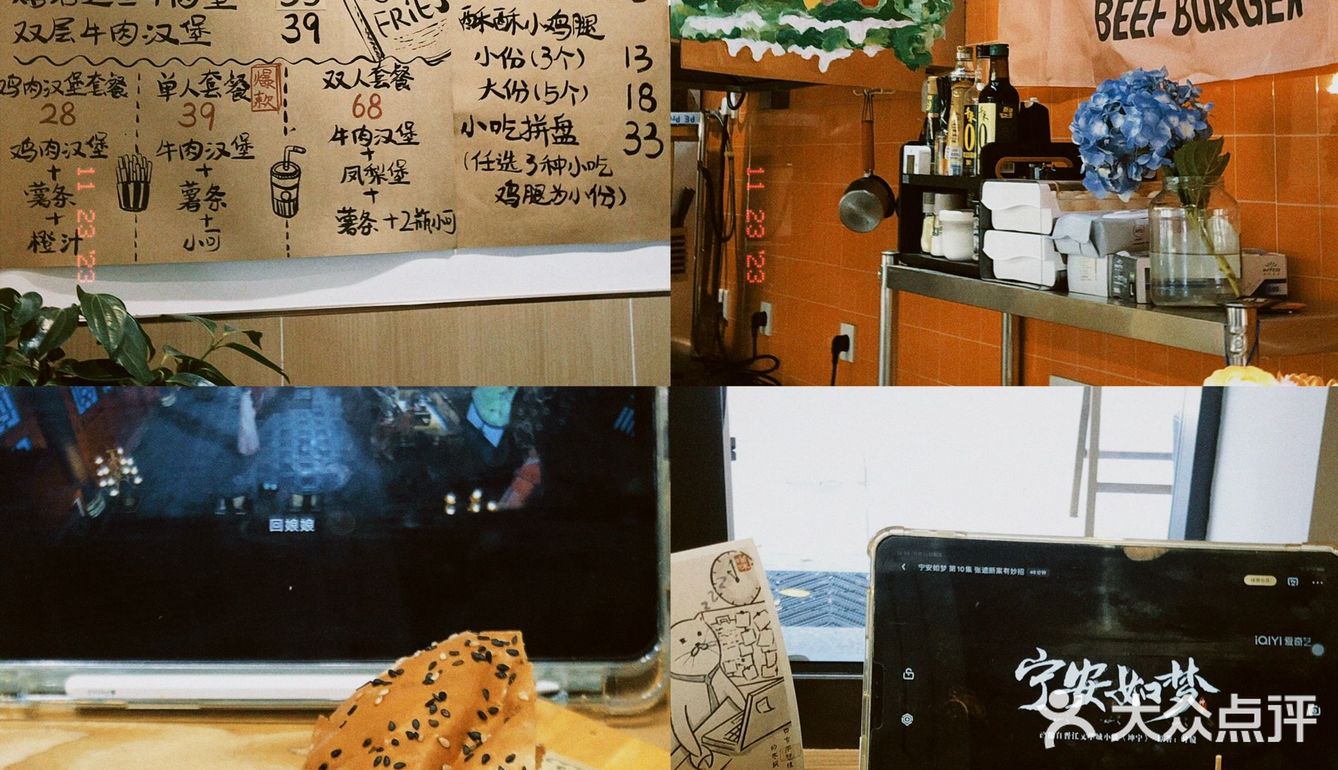 双层牛肉汉堡 39
FRIES
酥酥小鸡腿
小份(3个) 13
大份(5个) 18
小吃拼盘 33
(任选3种小吃
鸡腿为小份)
鸡肉汉堡套餐
28
鸡肉汉堡
+
薯条
+
橙汁
单人套餐
爆款
39
牛肉汉堡
+
薯条
+
小可
双人套餐
68
牛肉汉堡
+
凤梨堡
+
薯条+2瓶小可
11 23 '23
BEEF BURGER
11 23 '23
回娘娘
宁安如梦 第10集 张遮断案有妙招
iQIYI 爱奇艺
宁安如梦
大众点评